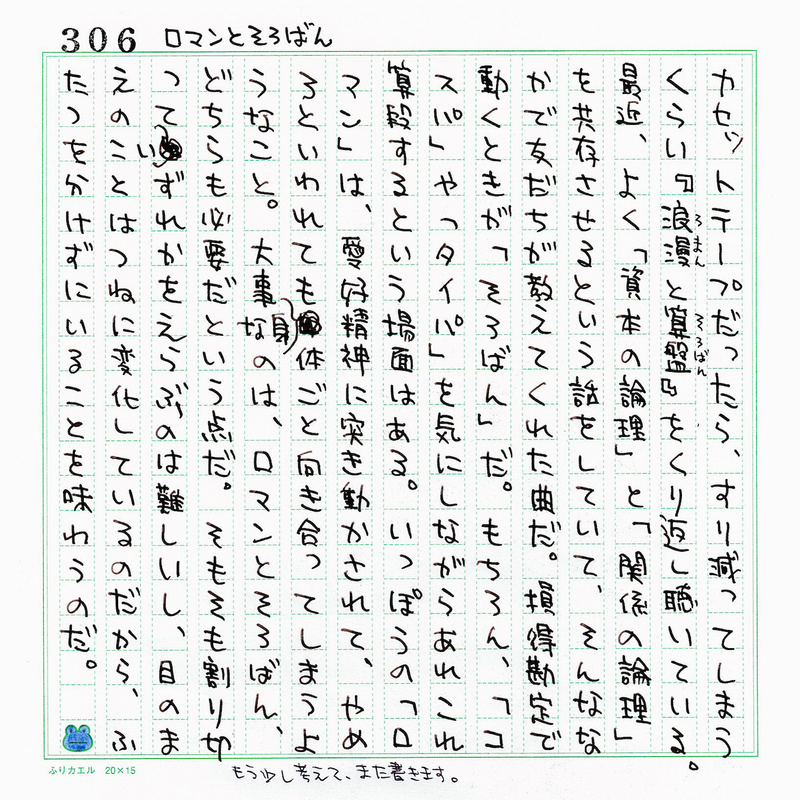 306 ロマンとそろばん
カセットテープだったら、すり減ってしまう
くらい『浪漫と算盤』をくり返し聴いている。
ろまん
そろばん
最近、よく「資本の論理」と「関係の論理」
を共存させるという話をしていて、そんなな
かで友だちが教えてくれた曲だ。損得勘定で
動くときが「そろばん」だ。もちろん、「コ
スパ」や「タイパ」を気にしながらあれこれ
算段するという場面はある。いっぽうの「ロ
マン」は、愛好精神に突き動かされて、やめ
ろといわれても身体ごと向き合ってしまうよ
うなこと。大事なのは、ロマンとそろばん、
どちらも必要だという点だ。そもそも割り切
っていずれかをえらぶのは難しいし、目のま
えのことはつねに変化しているのだから、ふ
たつを分けずにいることを味わうのだ。
ふりカエル 20×15
もう少し考えて、また書きます。